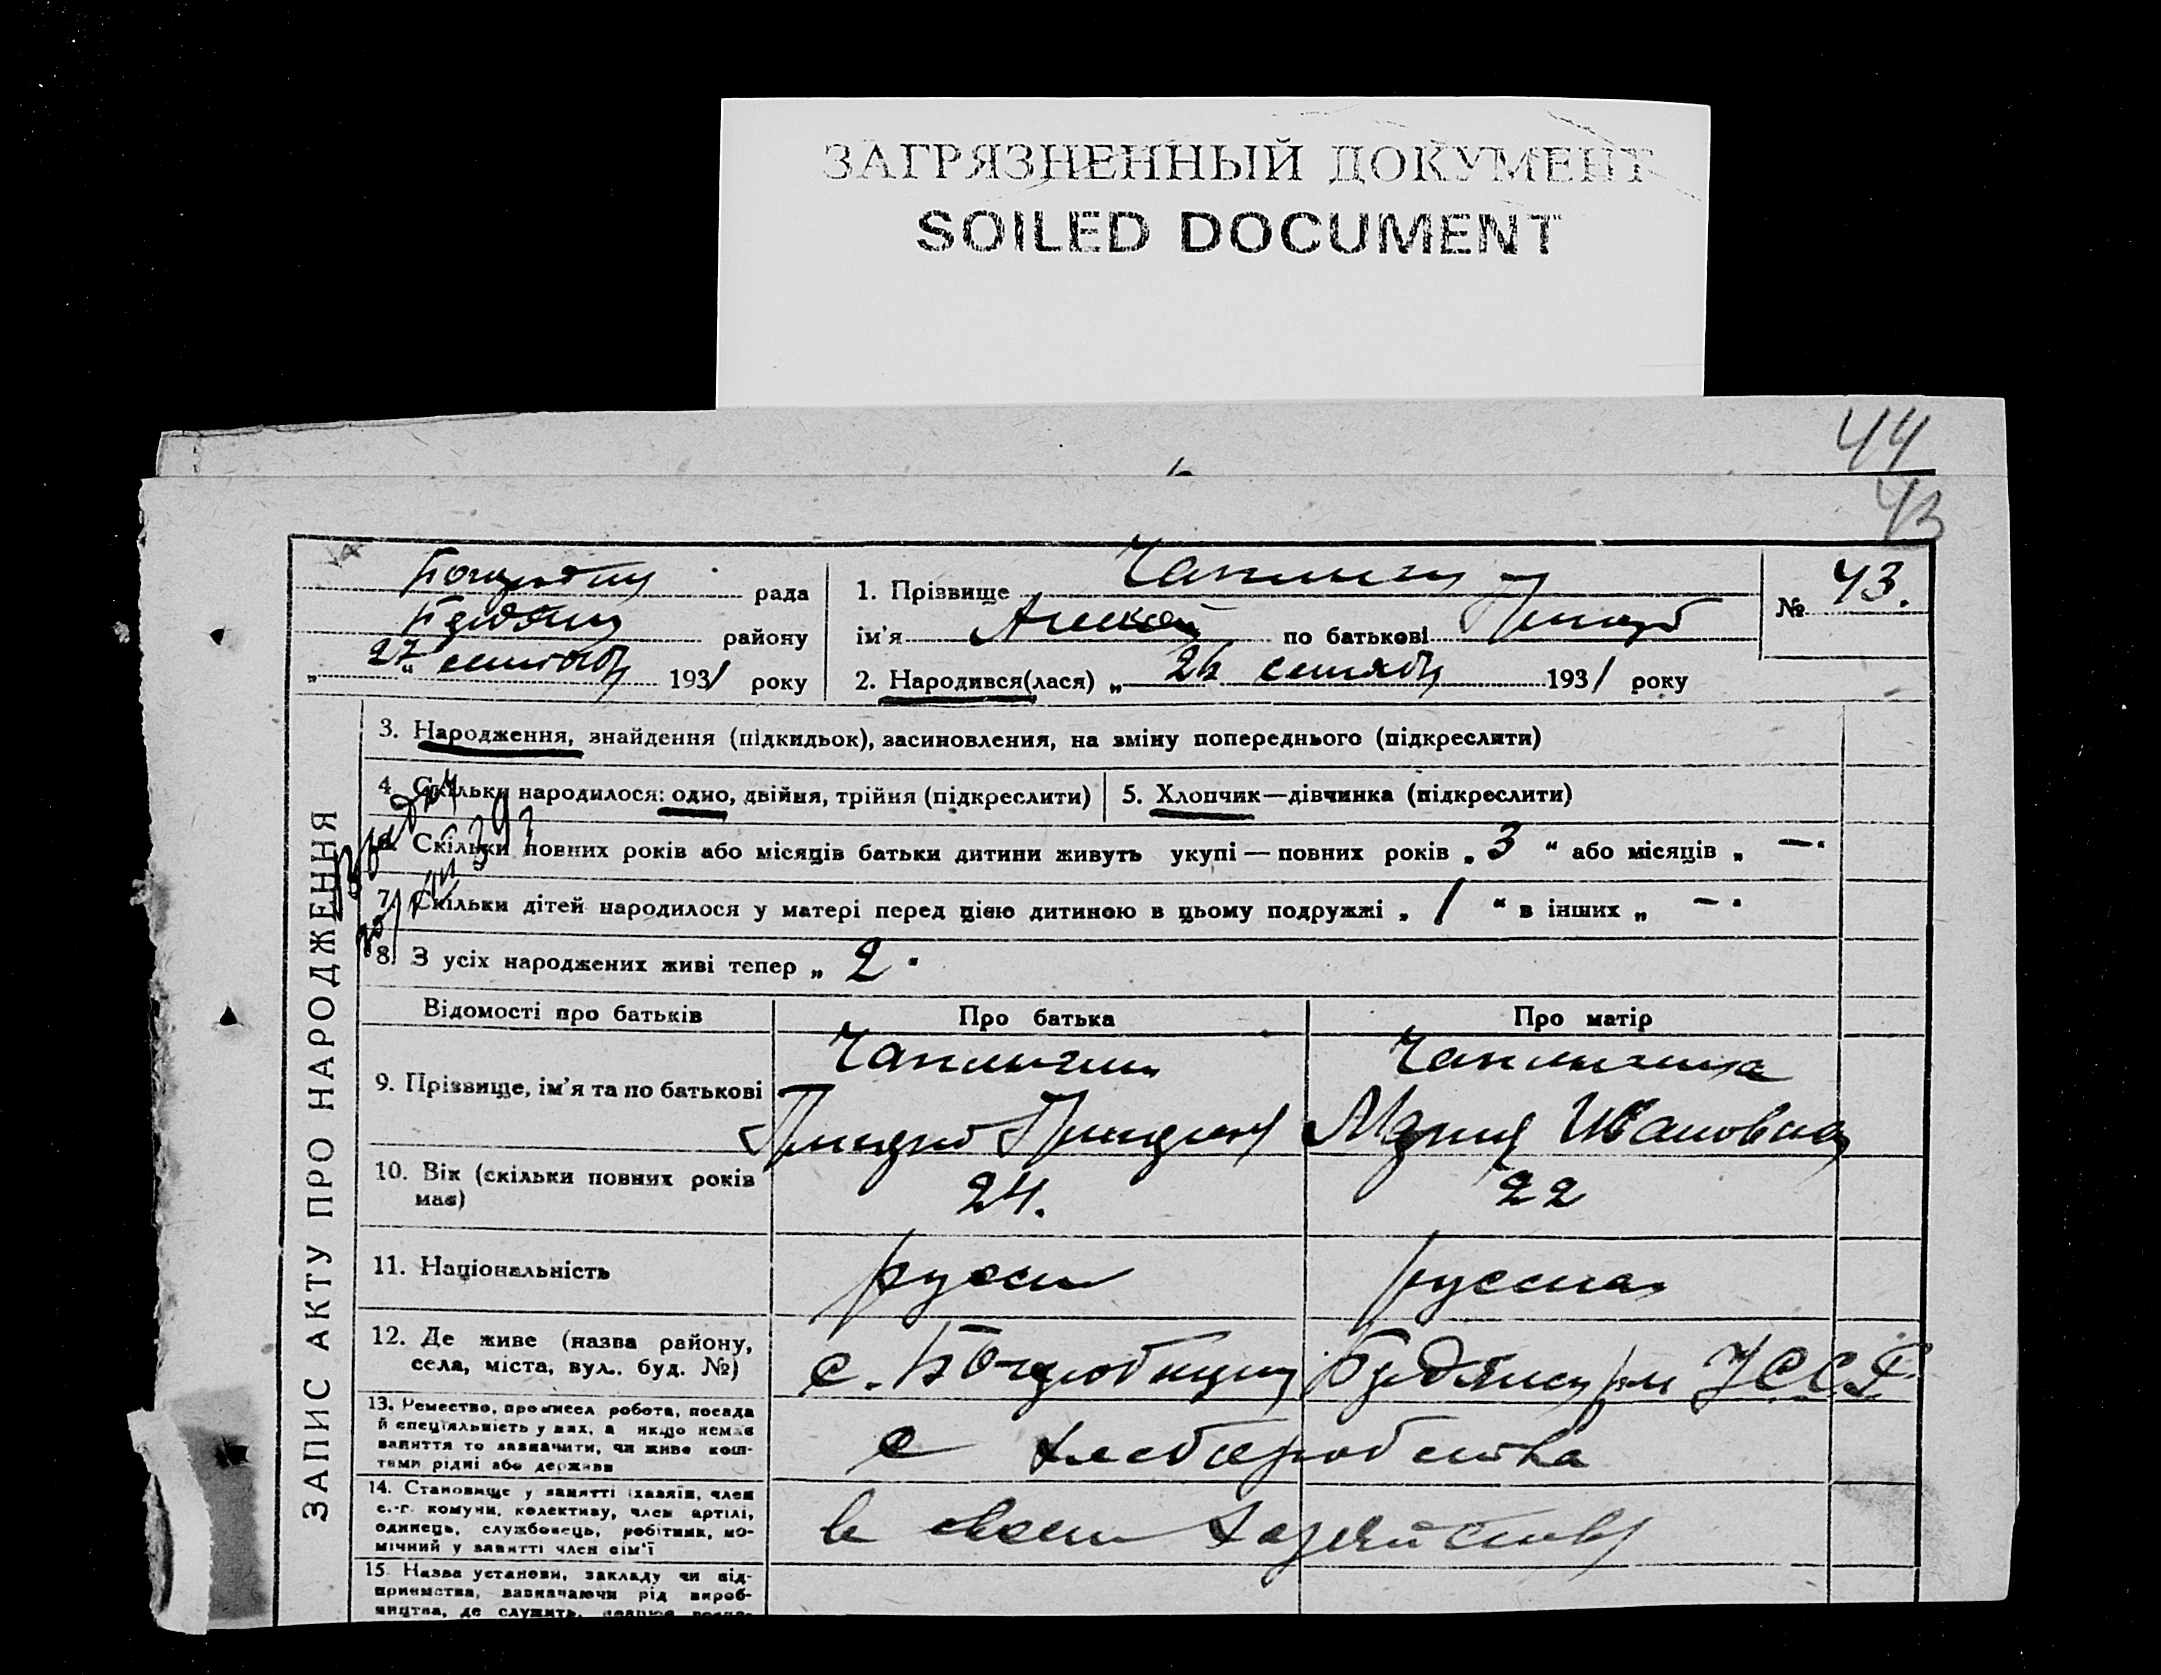 ЗАГРЯЗНЕННЫЙ ДОКУМЕНТ
SOILED DOCUMENT
44
43
рада
району
„ 27 “ 1931 року
1. Прізвище
ім’я по батькові
2. Народився(лася) „ 26 1931 року
№ 43.
ЗАПИС АКТУ ПРО НАРОДЖЕННЯ
3. Народження, знайдення (підкидьок), засиновлення, на зміну попереднього (підкреслити)
4. Скільки народилося: одно, двійня, трійня (підкреслити)
5. Хлопчик—дівчинка (підкреслити)
Скільки повних років або місяців батьки дитини живуть укупі — повних років „ 3 “ або місяців „ —.
7. Скільки дітей народилося у матері перед цією дитиною в цьому подружжі „ 1 “ в інших „ — .
8. З усіх народжених живі тепер „ 2 .
Відомості про батьків
Про батька
Про матір
9. Прізвище, ім’я та по батькові
Чаплыгин
Чаплыгина
Мария Ивановна
10. Вік (скільки повних років
має)
24.
22
11. Національність
русск
русская
12. Де живе (назва району,
села, міста, вул. буд. №)
с. УССР
13. Ремество, промисел робота, посада
й спеціяльність у них, а якщо немає
заняття то зазначити, чи живе кош-
тами рідні або держави
с хлеборобства
14. Становище у занятті (хазяїн, член
с.-г. комуни, колективу, член артілі,
одинець, службовець, робітник, мо-
мічний у занятті член сім’ї
в своем хозяйстве
15. Назва установи, закладу чи під-
приємства, зазначаючи рід вироб-
ництва, де служить,